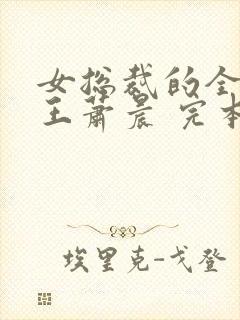 女总裁的全
王萧晨 完本
埃里克-戈登